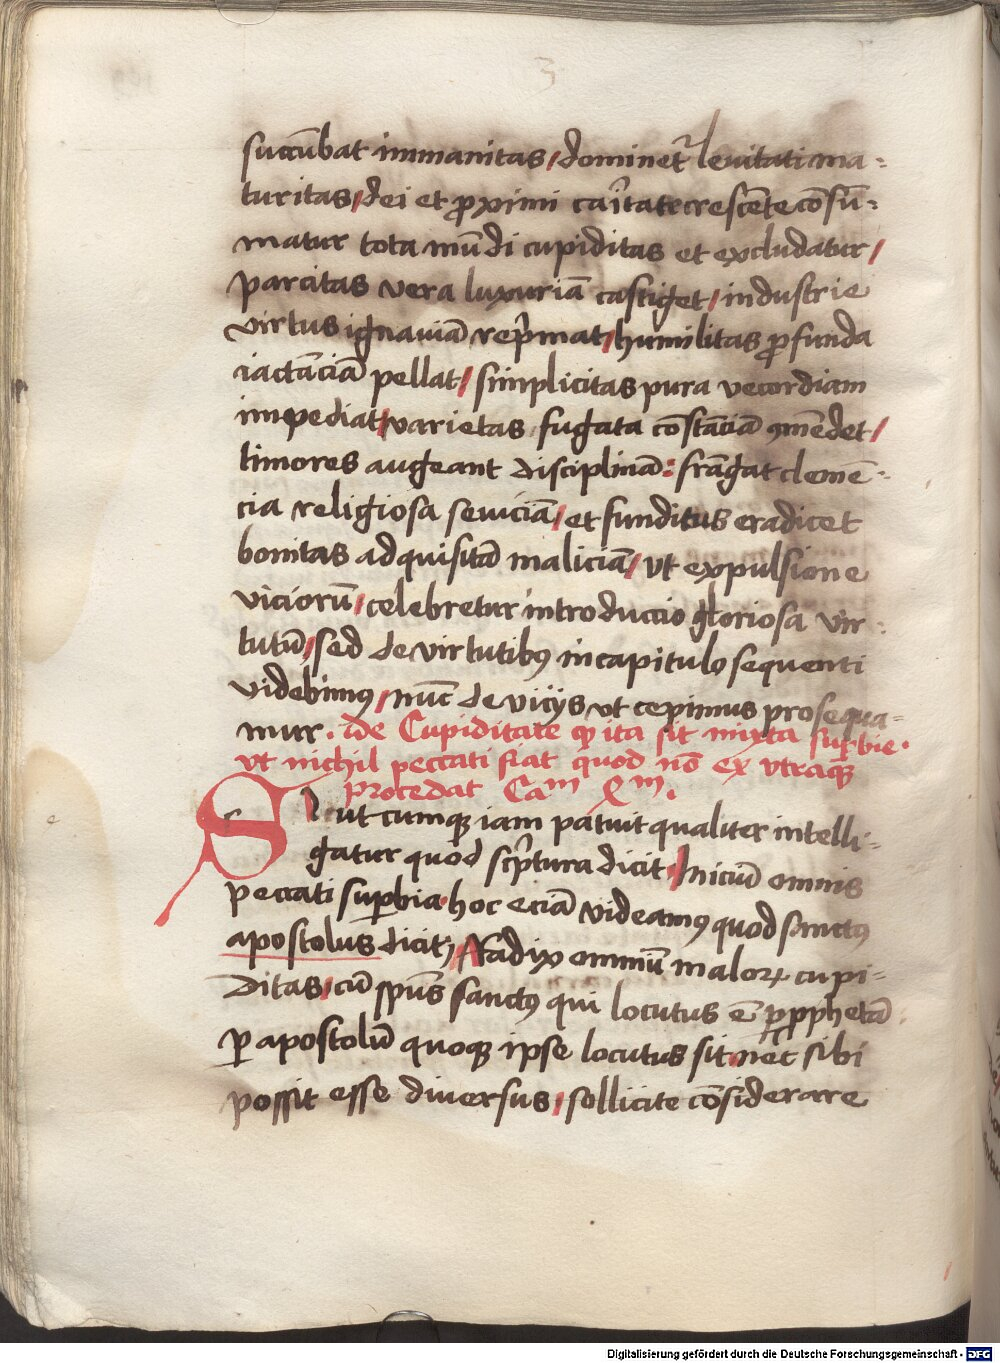 3
succūbat immanitas / dominet᷑ leuitati ma-
turitas / dei et ꝓximi caͥtate crescēte cōsū-
matur tota mūdi cupiditas et excludatur /
parcitas vera luxuriā castiget / industrie
virtus ignauiā rep̄mat / humilitas ꝓfunda
iactāciā pellat / simplicitas pura vecordiam
impediat / varietas fugata cōstāciā ꝯmēdet /
timores augeant disciplinā : frāgat clemē-
cia religiosa seuiciā / et funditus eradicet
bonitas adquisitā maliciā / vt expulsione
viciorū / celebretur introduccio gloriosa vir-
tutū / sed de virtutibꝰ in capitulo sequenti
videbimꝰ / nūc de vicijs vt cepimus prosequa-
mur . De Cupiditate ꝙ ita sit mixta suꝑbie .
vt nichil peccati fiat quod nō ex vtraqꝫ
procedat Caᵐ Xᵐ .
SIcut cumqꝫ iam patuit qualiter intelli-
gatur quod scͥptura dicit . Iniciū omnis
peccati suꝑbia . hoc eciā videamꝰ quod sanctꝰ
apostolus dicit / Radix omniū maloꝝ cupi-
ditas / cū sp̄us sanctꝰ qui locutus ē ꝑ ꝓphetā
ꝑ apostolū quoqꝫ ipse locutus sit . nec sibi
possit esse diuersus / sollicite cōsiderare
Digitalisierung gefördert durch die Deutsche Forschungsgemeinschaft - DFG